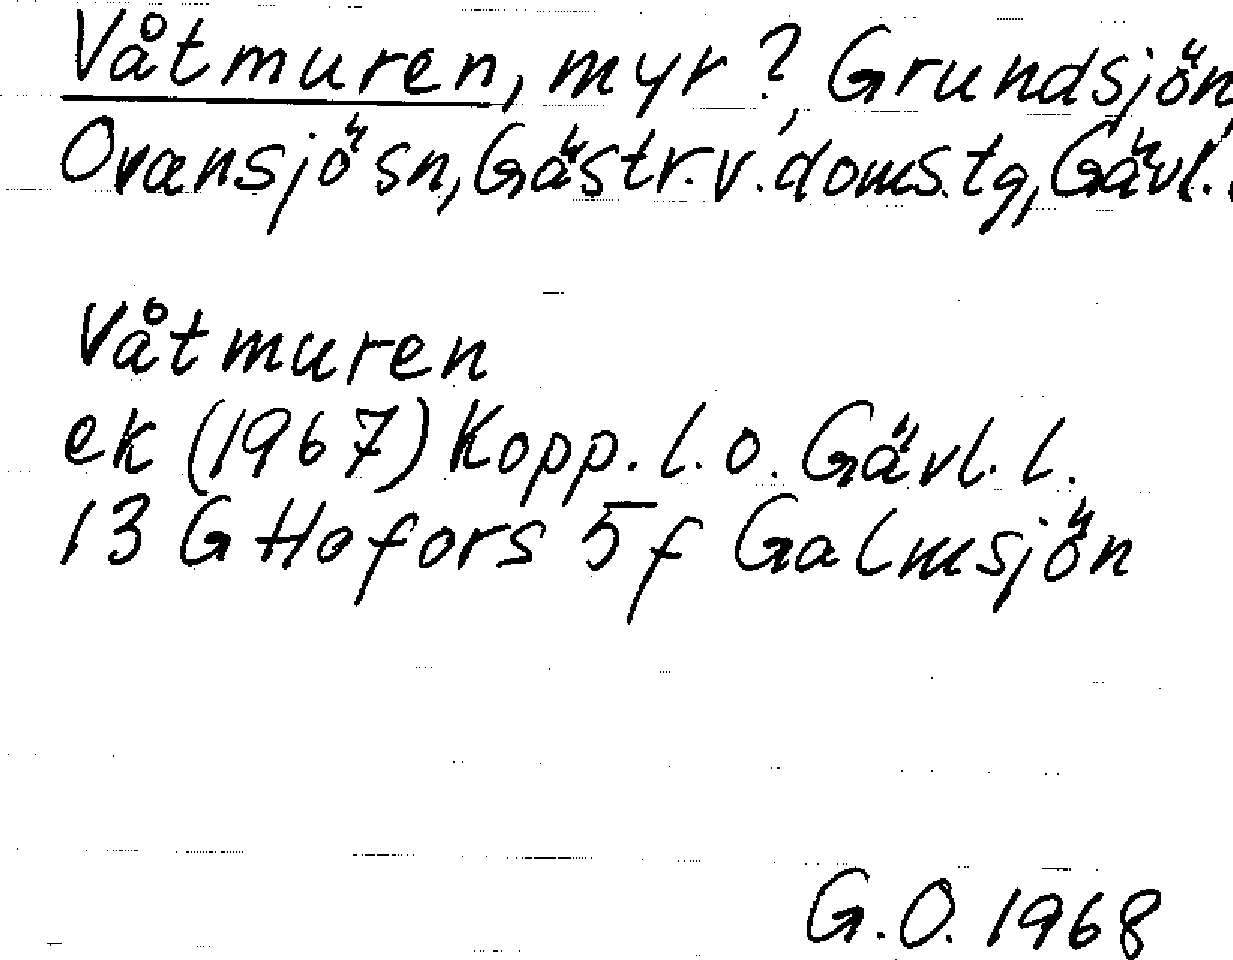 Våtmuren, myr?, Grundsjön,
Ovansjö sn, Gästr.v.doms.tg, Gävl.
Våtmuren
ek (1967) Kopp. l. o. Gävl. l.
13 G Hofors 5 f Galmsjön
G.O. 1968